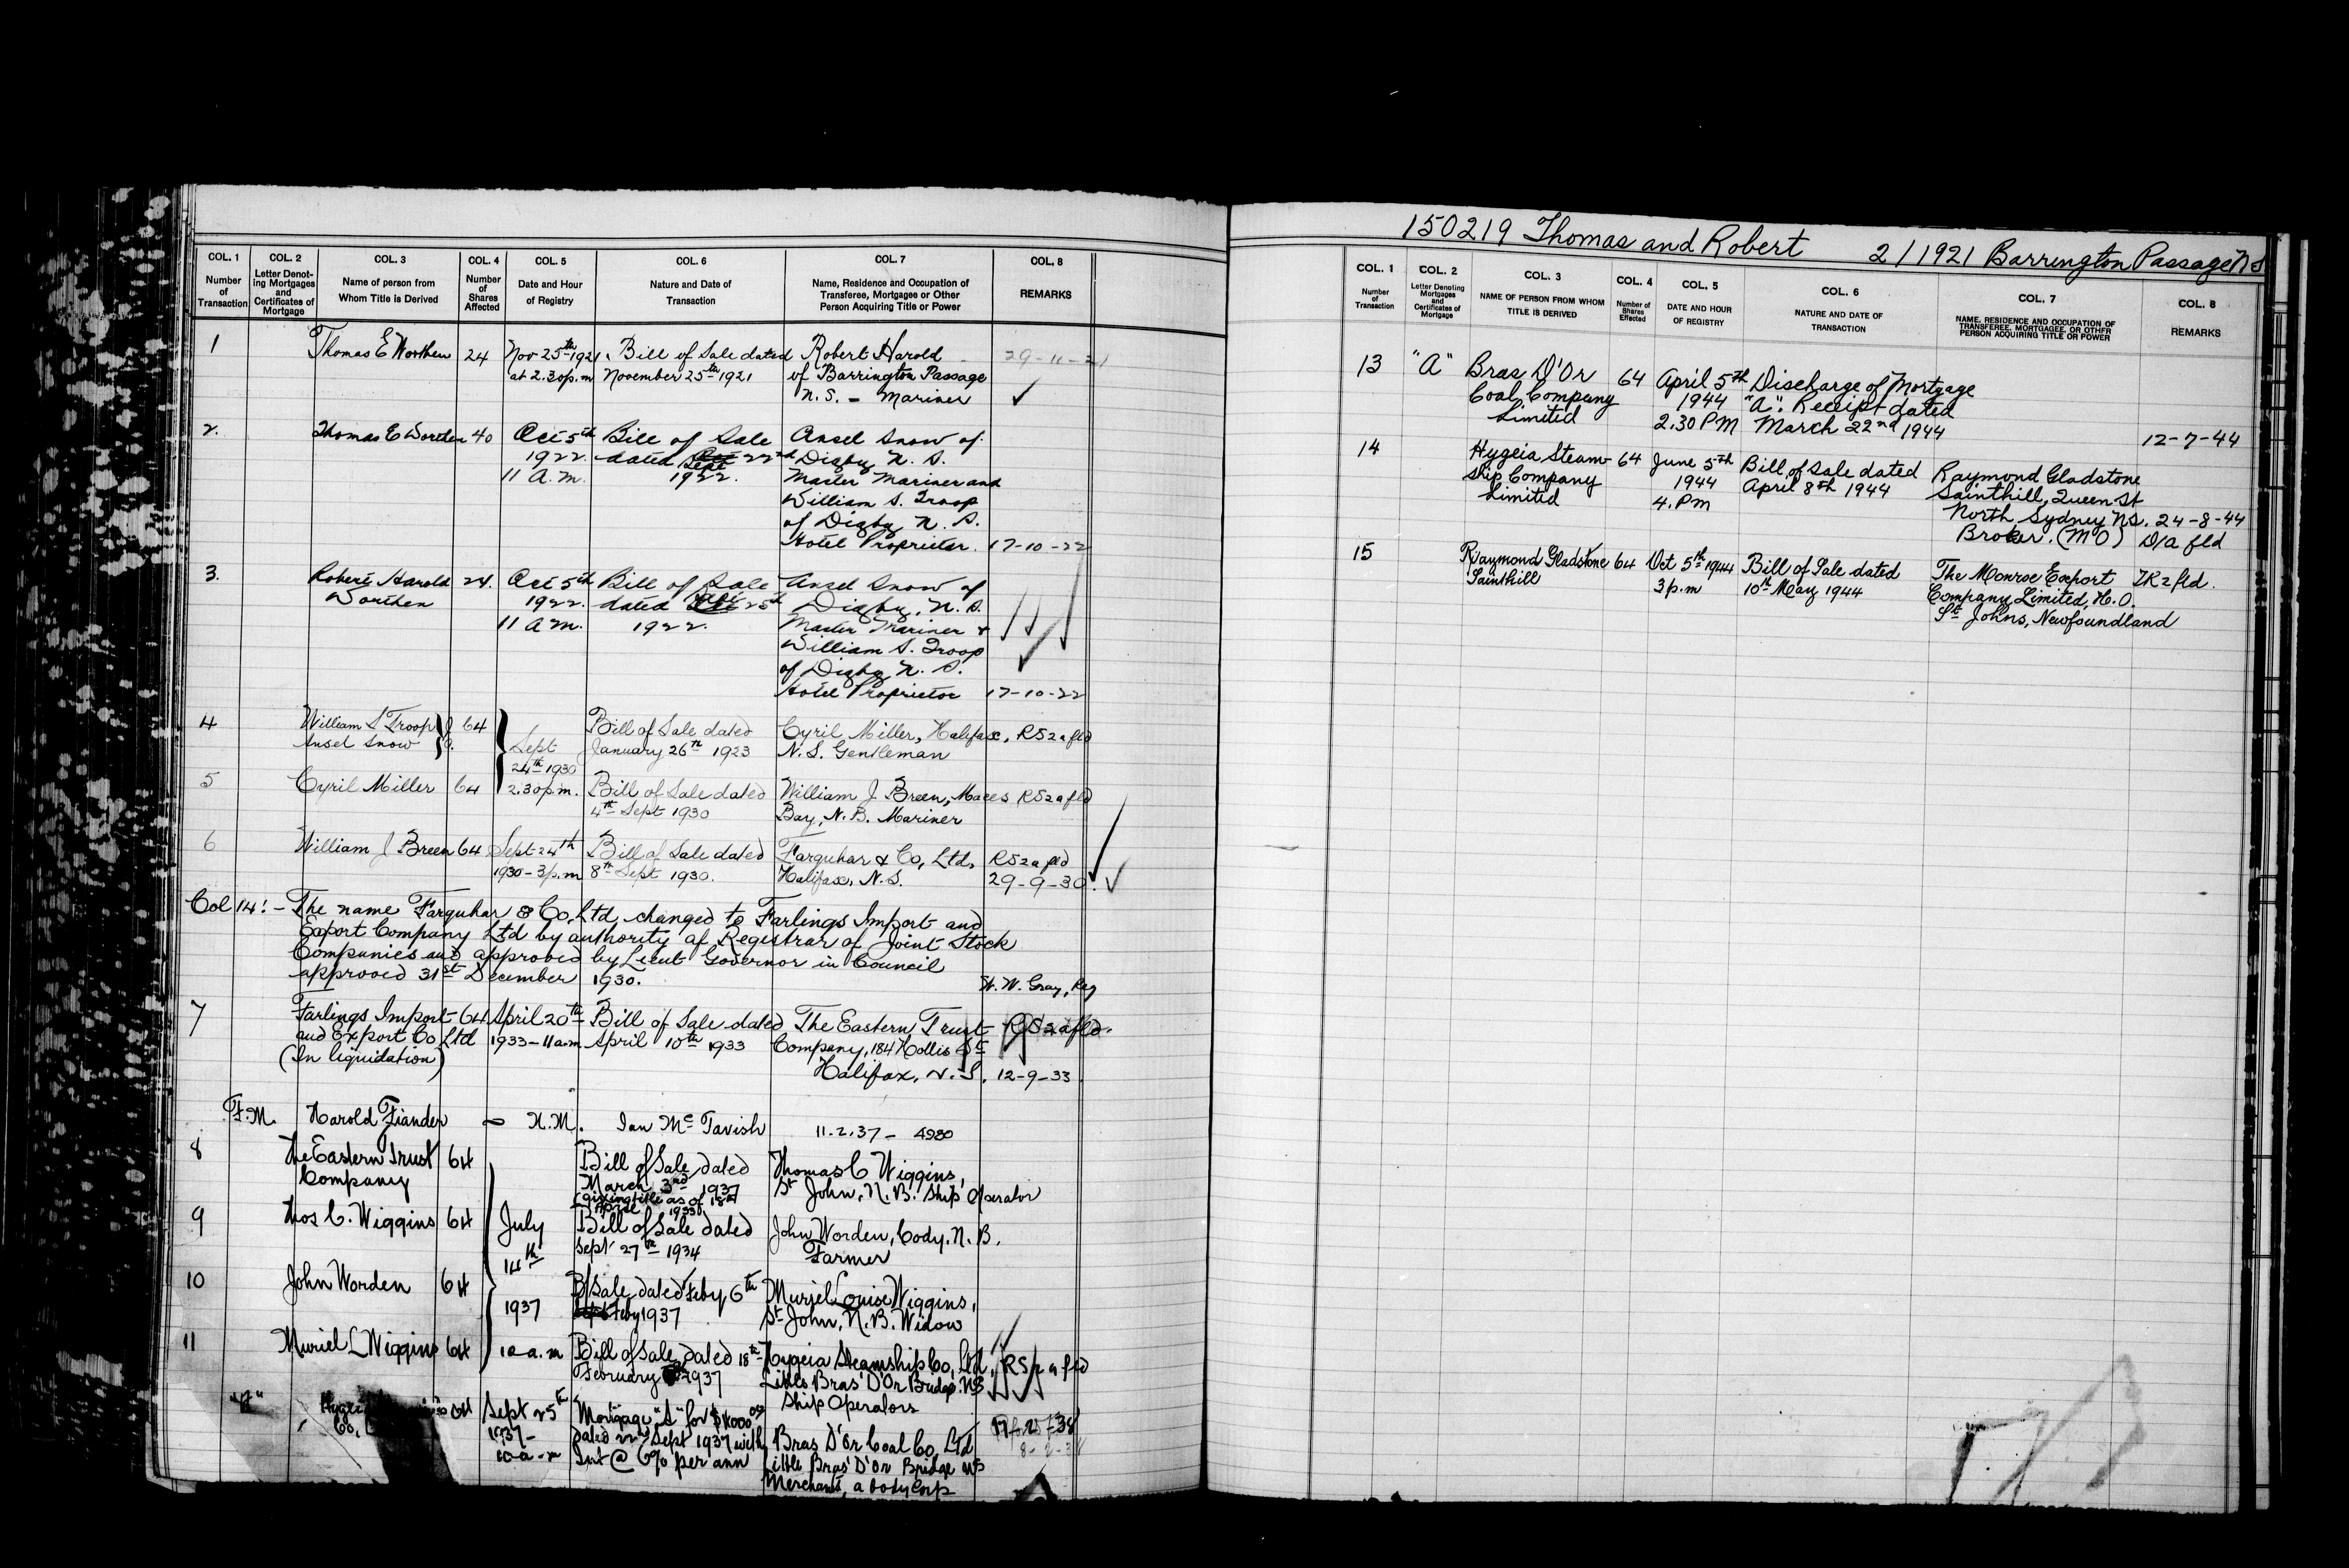 COL. 1 COL. 2 COL. 3 COL. 4 COL. 5 COL. 6 COL. 7 COL. 8
Number of Transaction Letter Denoting Mortgages and Certificates of Mortgage Name of person from Whom Title is Derived Number of Shares Affected Date and Hour of Registry Nature and Date of Transaction Name, Residence and Occupation of Transferee, Mortgagee or Other Person Acquiring Title or Power REMARKS
1 Thomas E Worthen 24 Nov 25th 1921 Bill of Sale dated Robert Harold 29-11-21
at 2.30 p.m November 25th 1921 of Barrington Passage
N.S. - Mariner
2. Thomas E Worthen 40 Oct 5th Bill of Sale Ansel Snow of
1922 dated Sept 22nd Digby N. S.
11 A.M. 1922. Master Mariner and
William S. Troop
of Digby N. S.
Hotel Proprietor. 17-10-22
3. Robert Harold 24. Oct 5th Bill of Sale Ansel Snow of
Worthen 1922. dated 25th Digby, N. S.
11 AM. 1922. Master Mariner &
William S. Troop
of Digby N. S.
Hotel Proprietor 17-10-22
4 William S Troop J 64 Bill of Sale dated Cyril Miller, Halifax, RS2a fld
Ansel Snow O. Sept January 26th 1923 N.S. Gentleman
24th 1930
5 Cyril Miller 64 2.30 p.m. Bill of Sale dated William J Breen, Maces RS2a fld
4th Sept 1930 Bay, N.B. Mariner
6 William J Breen 64 Sept 24th Bill of Sale dated Farquhar & Co, Ltd, RS2a fld
1930-3 p.m 8th Sept 1930. Halifax, N.S. 29-9-30.
Col 14:- The name Farquhar & Co. Ltd. changed to Farlings Import and
Export Company Ltd by authority of Registrar of Joint Stock
Companies and approved by Lieut Governor in Council
approved 31st December 1930.
W. W. Gray, Reg
7 Farlings Import 64 April 20th Bill of Sale dated The Eastern Trust RS2a fld.
and Export Co Ltd 1933-11 a.m. April 10th 1933 Company, 184 Hollis St
(In liquidation) Halifax, N.S. 12-9-33
F.M. Harold Fiander - N.M. Ian Mc Tavish 11.2.37 - 4980
8 The Eastern Trust 64 Bill of Sale dated Thomas C Wiggins,
Company March 3rd 1937 St John, N.B. Ship Operator
(giving title as of 18th
April 1933)
9 Thos C. Wiggins 64 July Bill of Sale dated John Worden, Cody, N. B.
14th Sept 27th 1934 Farmer
10 John Worden 64 B/Sale dated Feby 6th Muriel Louise Wiggins,
1937 Feby 1937 St John, N.B. Widow
11 Muriel L Wiggins 64 10 a.m Bill of Sale dated 18th Hygeia Steamship Co, Ltd, RS2a fld
February 1937 Little Bras D'Or Bridge NS
Ship Operators
"A" Sept 25th Mortgage "A" for $4000.00
Co, 1937- dated 22nd Sept 1937 with Bras D'Or Coal Co, Ltd
10 a-m Int @ 6% per ann Little Bras D'Or Bridge NS
Merchants, a body Corp
150219 Thomas and Robert 2/1921 Barrington Passage NS
COL. 1 COL. 2 COL. 3 COL. 4 COL. 5 COL. 6 COL. 7 COL. 8
Number of Transaction Letter Denoting Mortgages and Certificates of Mortgage NAME OF PERSON FROM WHOM TITLE IS DERIVED Number of Shares Effected DATE AND HOUR OF REGISTRY NATURE AND DATE OF TRANSACTION NAME, RESIDENCE AND OCCUPATION OF TRANSFEREE, MORTGAGEE, OR OTHER PERSON ACQUIRING TITLE OR POWER REMARKS
13 "A" Bras D'Or 64 April 5th Discharge of Mortgage
Coal Company 1944 "A". Receipt dated
Limited 2.30 PM March 22nd 1944 12-7-44
14 Hygeia Steam- 64 June 5th Bill of Sale dated Raymond Gladstone
ship Company 1944 April 8th 1944 Sainthill, Queen St
Limited 4. Pm North Sydney NS. 24-8-44
Broker. (MO) D/a fld
15 Raymond Gladstone 64 Oct 5th 1944 Bill of Sale dated The Monroe Export IR2 fld.
Sainthill 3 p.m 10th May 1944 Company Limited, H.O.
St Johns, Newfoundland